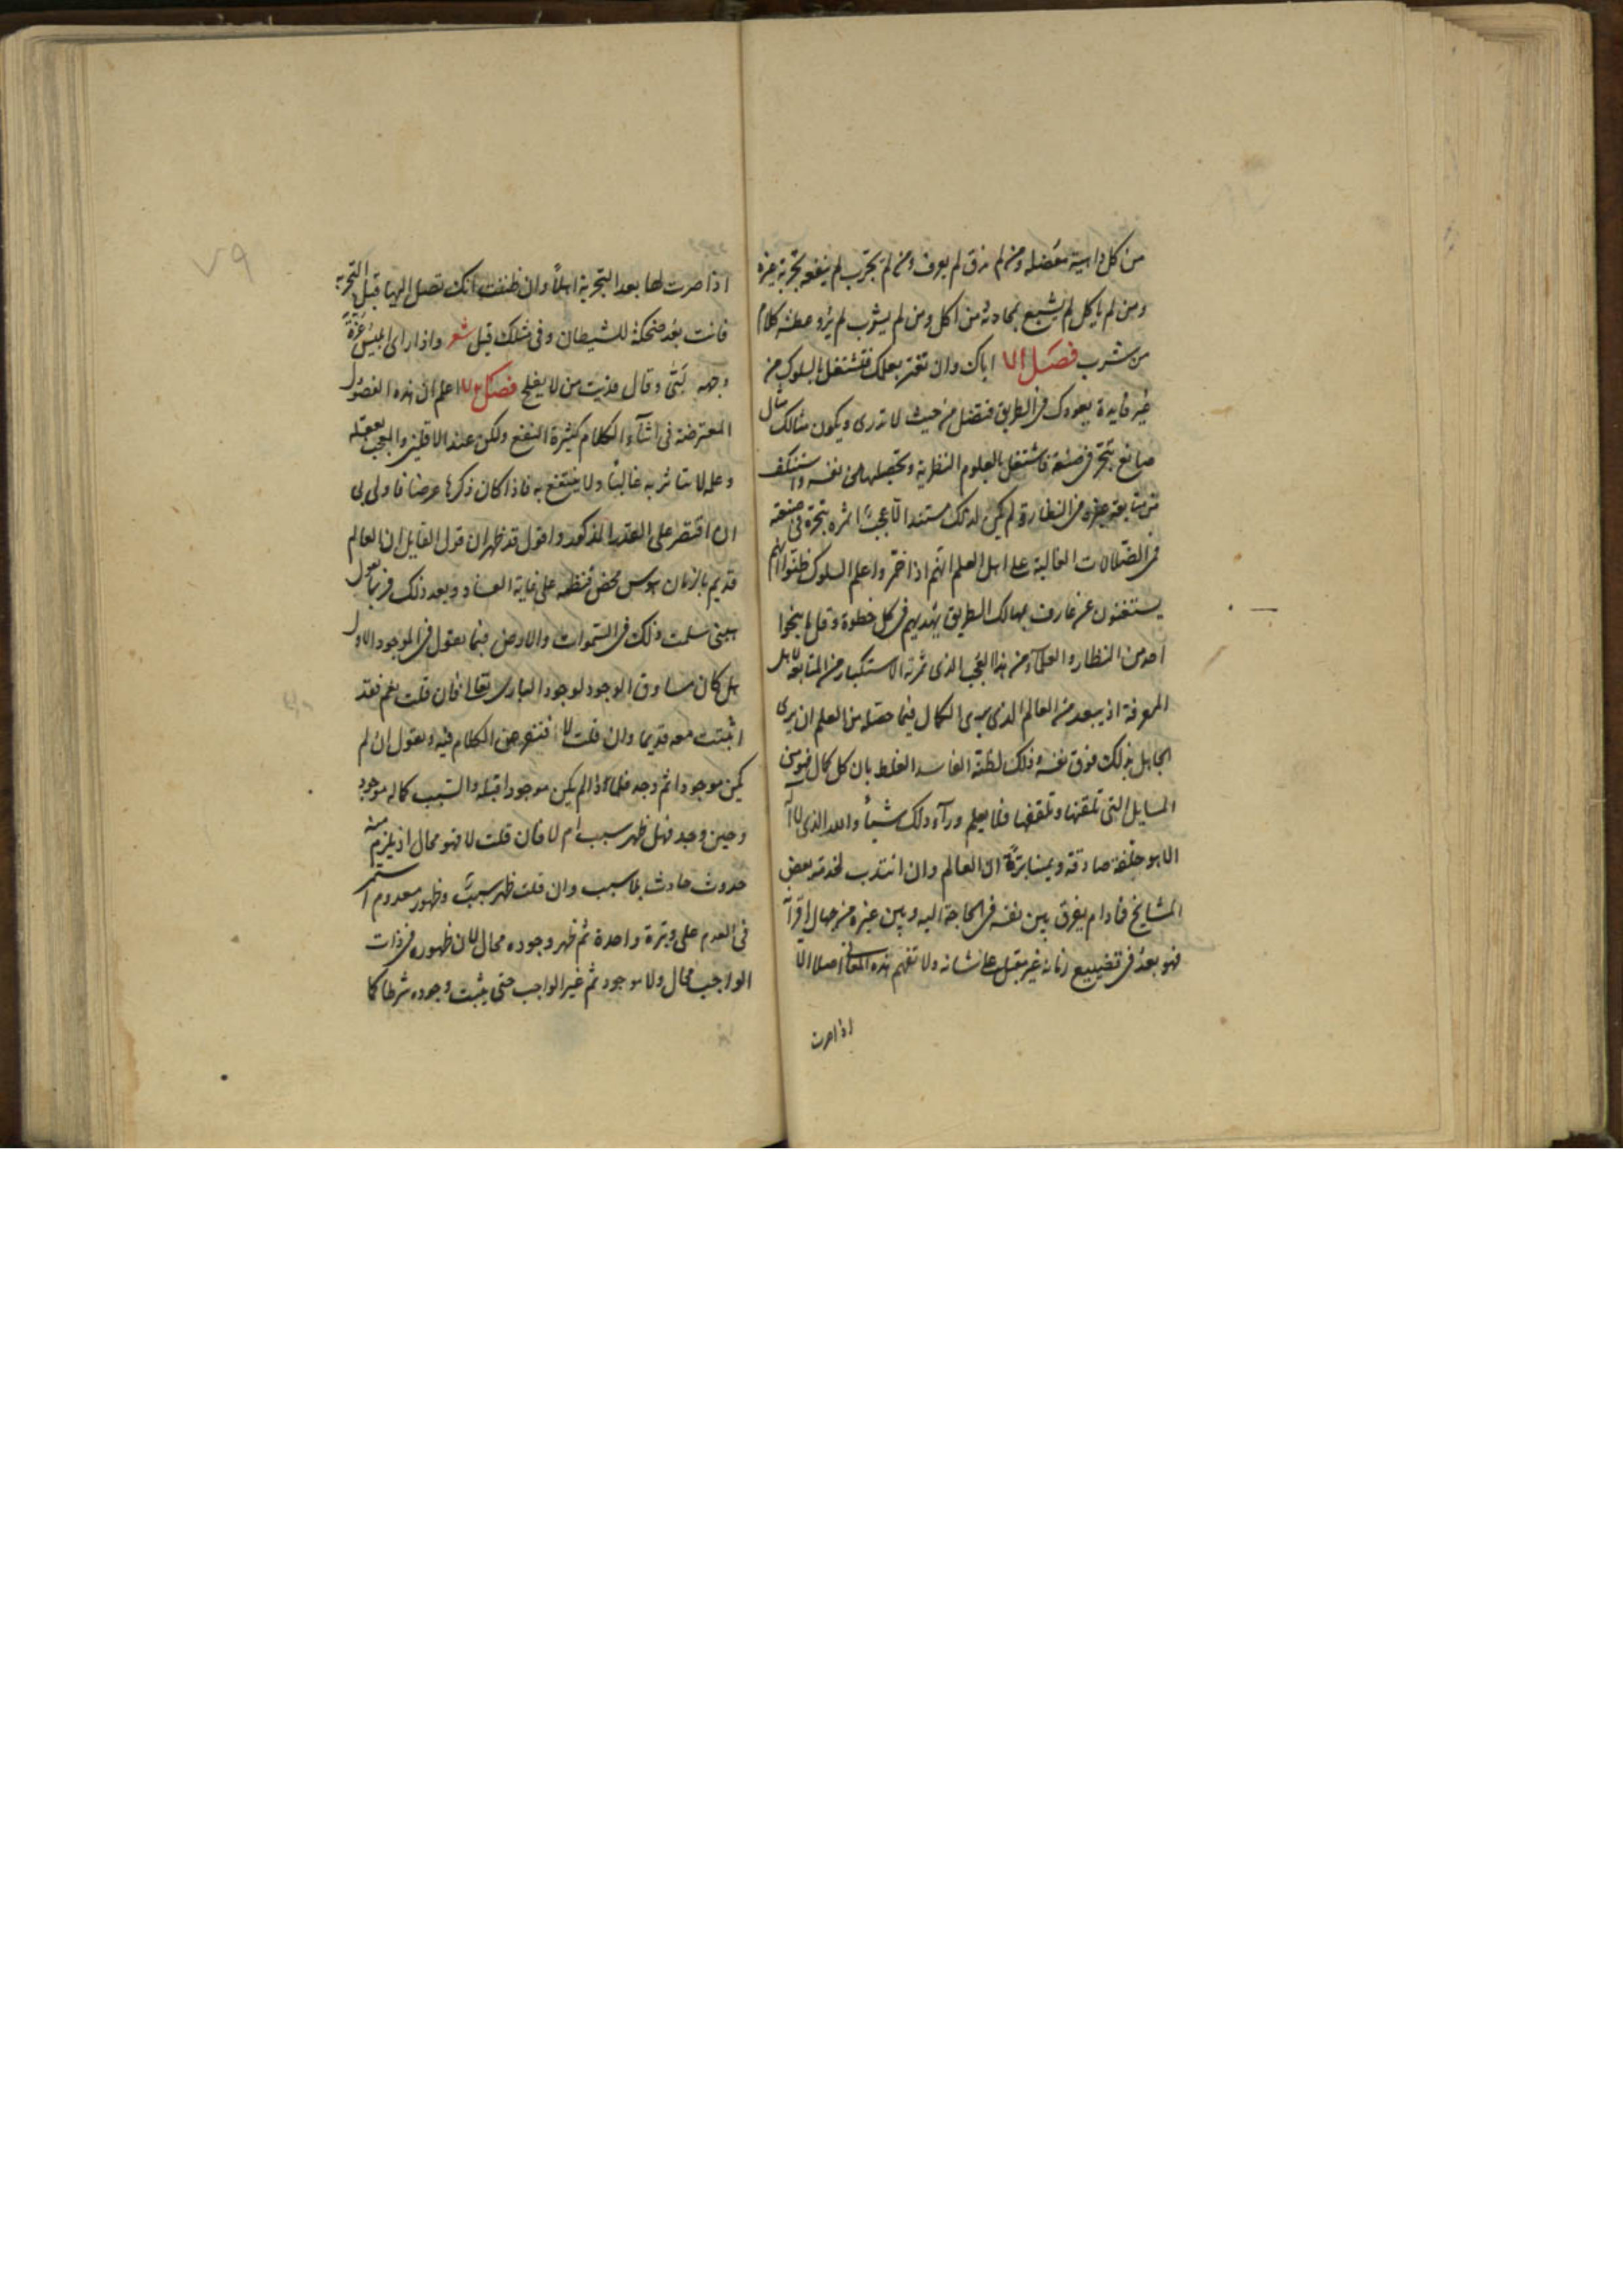 من كل داهية معضلة ومن لم يذق لم يعرف ومن لم يجرب لم ينفعه تجربة غيره
ومن لم ياكل لم يشبع بمحادثة من اكل ومن لم يشرب لم يرو عطشه كلام
من شرب فصل اياك وان تغتر بعلمك فتشتغل بالسلوك من
غير فايدة يعودك في الطريق فتضل من حيث لا تدرى ويكون مثالك مثال
صانع تبحر في صنعة فاشتغل بالعلوم النظرية وتحصيلها من نفسه واستنكف
من متابعة غيره من النظار ولم يكن لذلك مستند الا عجبا اثمره تبحره في صنعته
فمن الضلالات الغالبة على اهل العلم انهم اذا علم السلوك ظنوا انهم
يستغنون عن عارف بمهالك الطريق يهديهم في كل خطوة وقل ما ينجوا
احد من النظار والعلماء من هذا العجب الذى ثمرته الاستكبار من المتابعة لاهل
المعرفة اذ يبعد من العالم الذى يرى الكمال فيما حصله من العلم ان يرى
الجاهل بذلك فوق نفسه وذلك لظنه الفاسد الغلط بان كل كمال فهو من
المسايل التى تلقنها وتلقفها فلا يعلم ورآء ذلك شيأ والله الذى لا اله
الا هو حلفة صادقة ان العالم وان انتدب لخدمة بعض
المشايخ فما دام يفرق بين نفسه في الحاجة اليه وبين غيره من جهال
فهو بعد في تضييع زمانه غير مقبل على شانه ولا تفهم هذه المعانى اصلا الا
اذا صرت
٧٩
اذا صرت لها بعد التجربة اهلا وان ظننت انك تصل اليها قبل التجربة
فانت بعد ضحكة للشيطان وفى مثلك قيل شعر واذا راى ابليس غرة
وجهه حيى وقال فديت من لا يفلح فصل اعلم ان هذه الفصول
المعترضة فى اثنآء الكلام كثيرة النفع ولكن عند الاقلين والمعجب بعقله
وعلمه لا يتاثر به غالبا ولا ينتفع به فاذا كان ذكرها عرضا فاولى بى
ان اقتصر على القدر المذكور واقول قد ظهر ان قول القايل ان العالم
قديم بالزمان هوس محض فنظمه على غاية الفساد وبعد ذلك فربما تقول
هبنى سلمت ذلك في السموات والارض فيما تقول في الموجود الاول
هل كان مساوق الوجود لوجود البارى تعالى فان قلت نعم فقد
اثبتت معه قديما وان قلت لا فنفرض الكلام فيه ونقول ان لم
يكن موجودا ثم وجد فلماذا لم يكن موجودا قبله والسبب كماله موجود
وحين وجد فهل ظهر سبب ام لا فان قلت لا فهو محال اذ يلزم منه
حدوث حادث بلا سبب وان قلت ظهر سبب وظهور معدوم استمر
فى العدم على وتيرة واحدة ثم ظهر وجوده محال لان ظهوره في ذات
الواجب محال ولا موجود ثم غير الواجب حتى يثبت وجوده شرطا كما